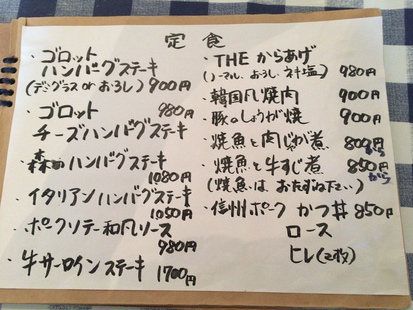 定食
・ゴロット
ハンバーグステーキ
(デミグラス or おろし) 900円
・ゴロット 980円
チーズハンバーグステーキ
・森のハンバーグステーキ
1080円
・イタリアンハンバーグステーキ
1050円
・ポークソテー和風ソース
980円
・牛サーロインステーキ
1700円
・THE からあげ
(ノーマル、おろし、ネギ塩) 980円
・韓国風焼肉 900円
・豚のしょうが焼 900円
・焼魚と肉じゃが煮 800円
から
・焼魚と牛すじ煮 850円
から
(焼魚はおたずね下さい)
・信州ポークかつ丼 850円
ロース
ヒレ(2枚)